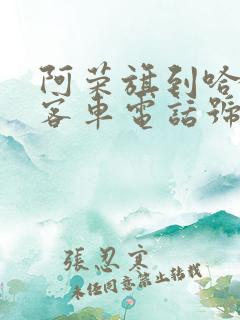 阿荣旗到哈
客車電話號
張忍寒
未经同意禁止转载